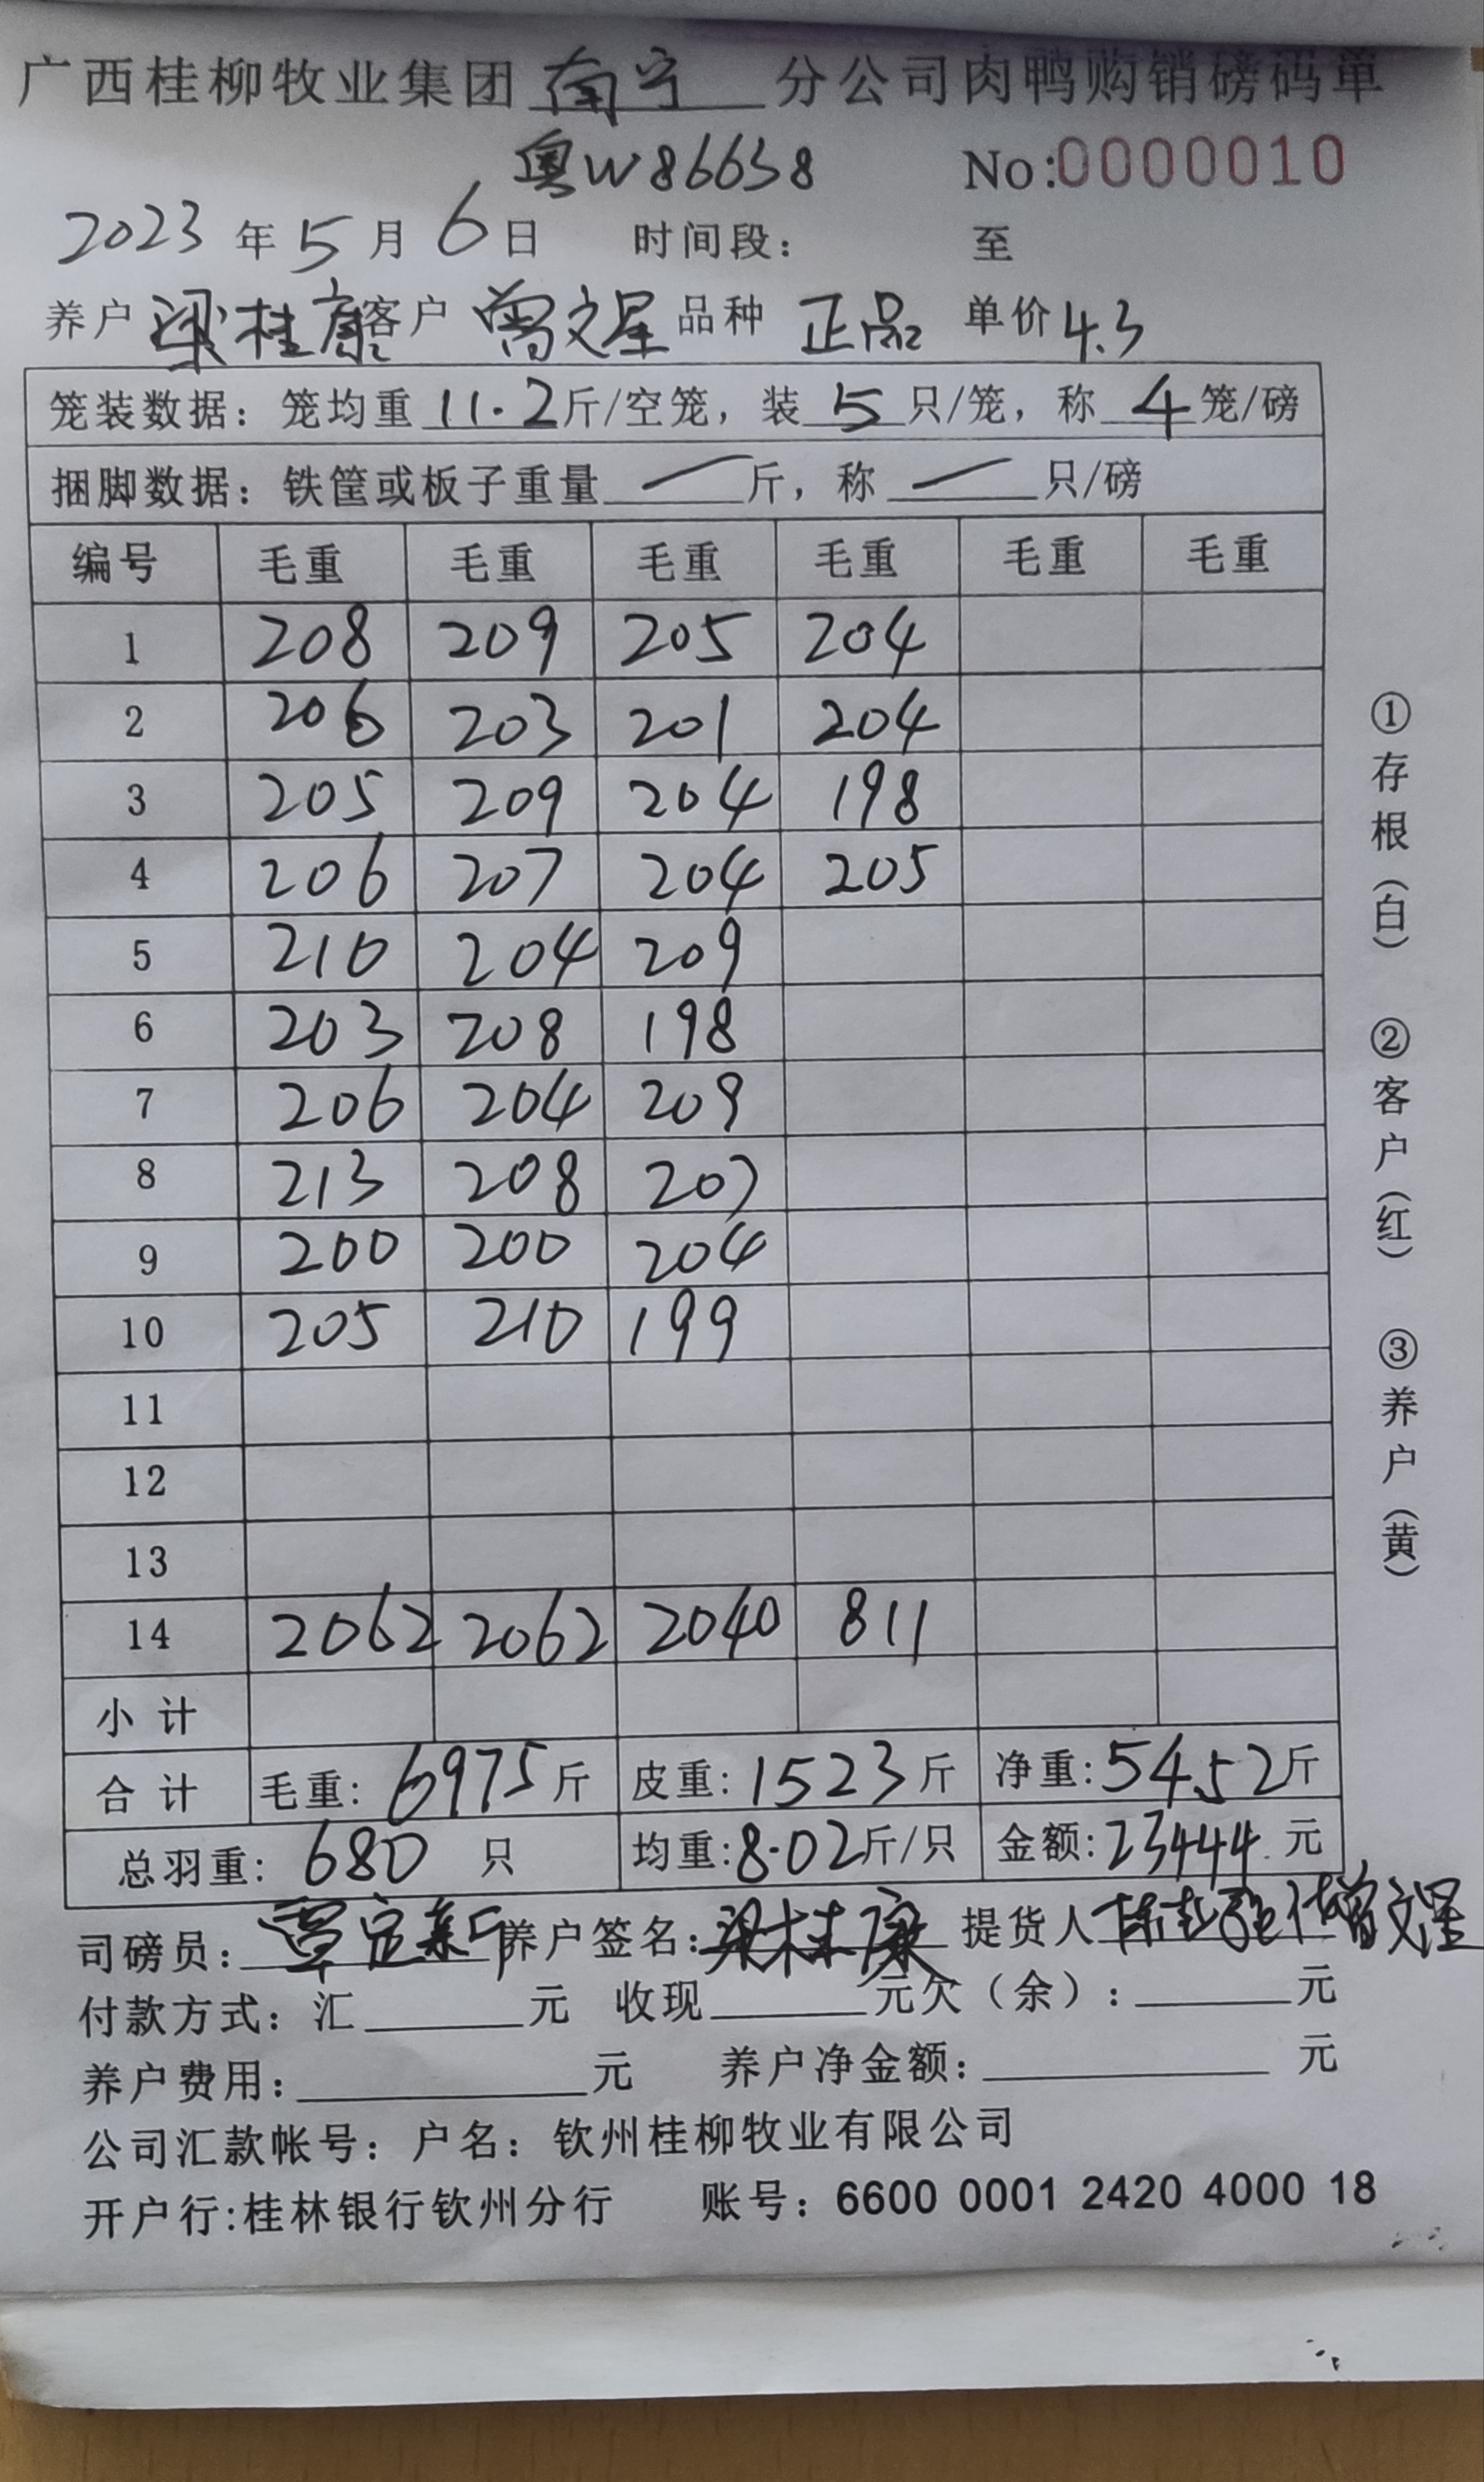 广西桂柳牧业集团南宁分公司肉鸭购销磅码单
粤W86638 No:0000010
2023年5月6日 时间段： 至
养户 梁桂康 客户 曾文星 品种 正品 单价 4.3
笼装数据：笼均重11.2斤/空笼，装5只/笼，称4笼/磅
捆脚数据：铁筐或板子重量 — 斤，称 — 只/磅
编号 毛重 毛重 毛重 毛重 毛重 毛重
1 208 209 205 204
2 206 203 201 204
3 205 209 204 198
4 206 207 204 205
5 210 204 209
6 203 208 198
7 206 204 209
8 213 208 207
9 200 200 204
10 205 210 199
11
12
13
14 2062 2062 2040 811
小计
合计 毛重：6975斤 皮重：1523斤 净重：5452斤
总羽重：680 只 均重：8.02斤/只 金额：23444 元
司磅员： 养户签名：梁桂康 提货人 代曾文星
付款方式：汇 元 收现 元欠（余）： 元
养户费用： 元 养户净金额： 元
公司汇款帐号：户名：钦州桂柳牧业有限公司
开户行:桂林银行钦州分行 账号：6600 0001 2420 4000 18
①存根（白） ②客户（红） ③养户（黄）